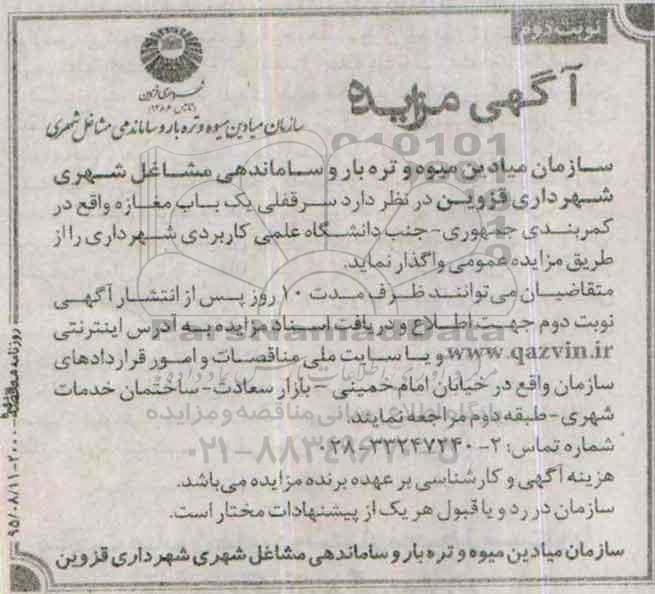 نوبت دوم
آگهی مزایده
شهرداری قزوین
سازمان میادین میوه و تره بار و ساماندهی مشاغل شهری
سازمان میادین میوه و تره بار و ساماندهی مشاغل شهری
شهرداری قزوین در نظر دارد سرقفلی یک باب مغازه واقع در
کمربندی جمهوری - جنب دانشگاه علمی کاربردی شهرداری را از
طریق مزایده عمومی واگذار نماید.
متقاضیان می‌توانند ظرف مدت ۱۰ روز پس از انتشار آگهی
نوبت دوم جهت اطلاع و دریافت اسناد مزایده به آدرس اینترنتی
www.qazvin.ir و یا سایت ملی مناقصات و امور قراردادهای
سازمان واقع در خیابان امام خمینی - بازار سعادت - ساختمان خدمات
شهری - طبقه دوم مراجعه نمایند.
شماره تماس: ۲-۳۳۲۴۷۲۴۰-۰۲۸
هزینه آگهی و کارشناسی بر عهده برنده مزایده می‌باشد.
سازمان در رد و یا قبول هر یک از پیشنهادات مختار است.
سازمان میادین میوه و تره بار و ساماندهی مشاغل شهری شهرداری قزوین
ParsNamadData
پایگاه اطلاع رسانی مناقصه و مزایده
روزنامه
۹۵/۰۸/۱۱-۲۰۰۰